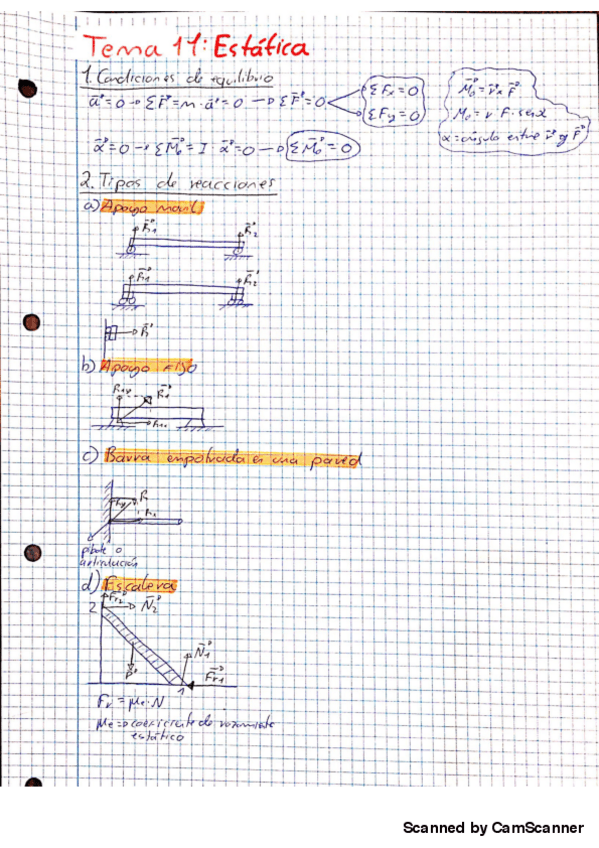 Tema 11: Estática
1. Condiciones de equilibrio
a⃗ = 0 → ΣF⃗ = m · a⃗ = 0 → ΣF⃗ = 0
ΣFx = 0
ΣFy = 0
M⃗o = r⃗ x F⃗
Mo = r F · sen α
α = ángulo entre r⃗ y F⃗
α⃗ = 0 → ΣM⃗o = I · α⃗ = 0 → ΣM⃗o = 0
2. Tipos de reacciones
a) Apoyo movil
R⃗1 R⃗2
R⃗1 R⃗2
R⃗
b) Apoyo FIJO
R1y R⃗1
R1x
c) Barra empotrada en una pared
Ry R
Rx
pibote o
articulación
d) Escalera
F⃗r2
2 N⃗2
N⃗1
P⃗
1 F⃗r1
Fr = μe · N
μe => coeficiente de rozamiento
estático
Scanned by CamScanner